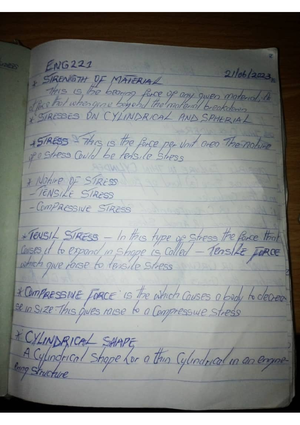 ENG221
* STRENGTH OF MATERIAL 21/06/2023
- This is the bearing force of any given material ie
a force that when gone beyond the material breakdown
* STRESSES ON CYLINDRICAL AND SPHERIAL
* STRESS - This is the force per unit area The nature
of a stress could be tensile stress
* NATURE OF STRESS
- TENSILE STRESS
- COMPRESSIVE STRESS
* TENSIL STRESS - In this type of stress the force that
causes it to expand in shape is called - TENSILE FORCE
which give raise to tensile stress
* COMPRESSIVE FORCE is the which causes a body to decrea-
se in size. This gives raise to a compressive stress
* CYLINDRICAL SHAPE
A Cylindrical shape for a thin cylindrical in an engine-
ering structure